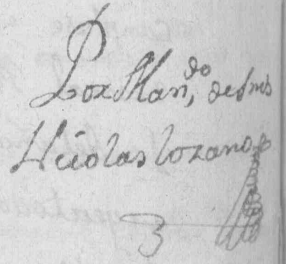 Por Man.do de Sm.
Nicolas lozano